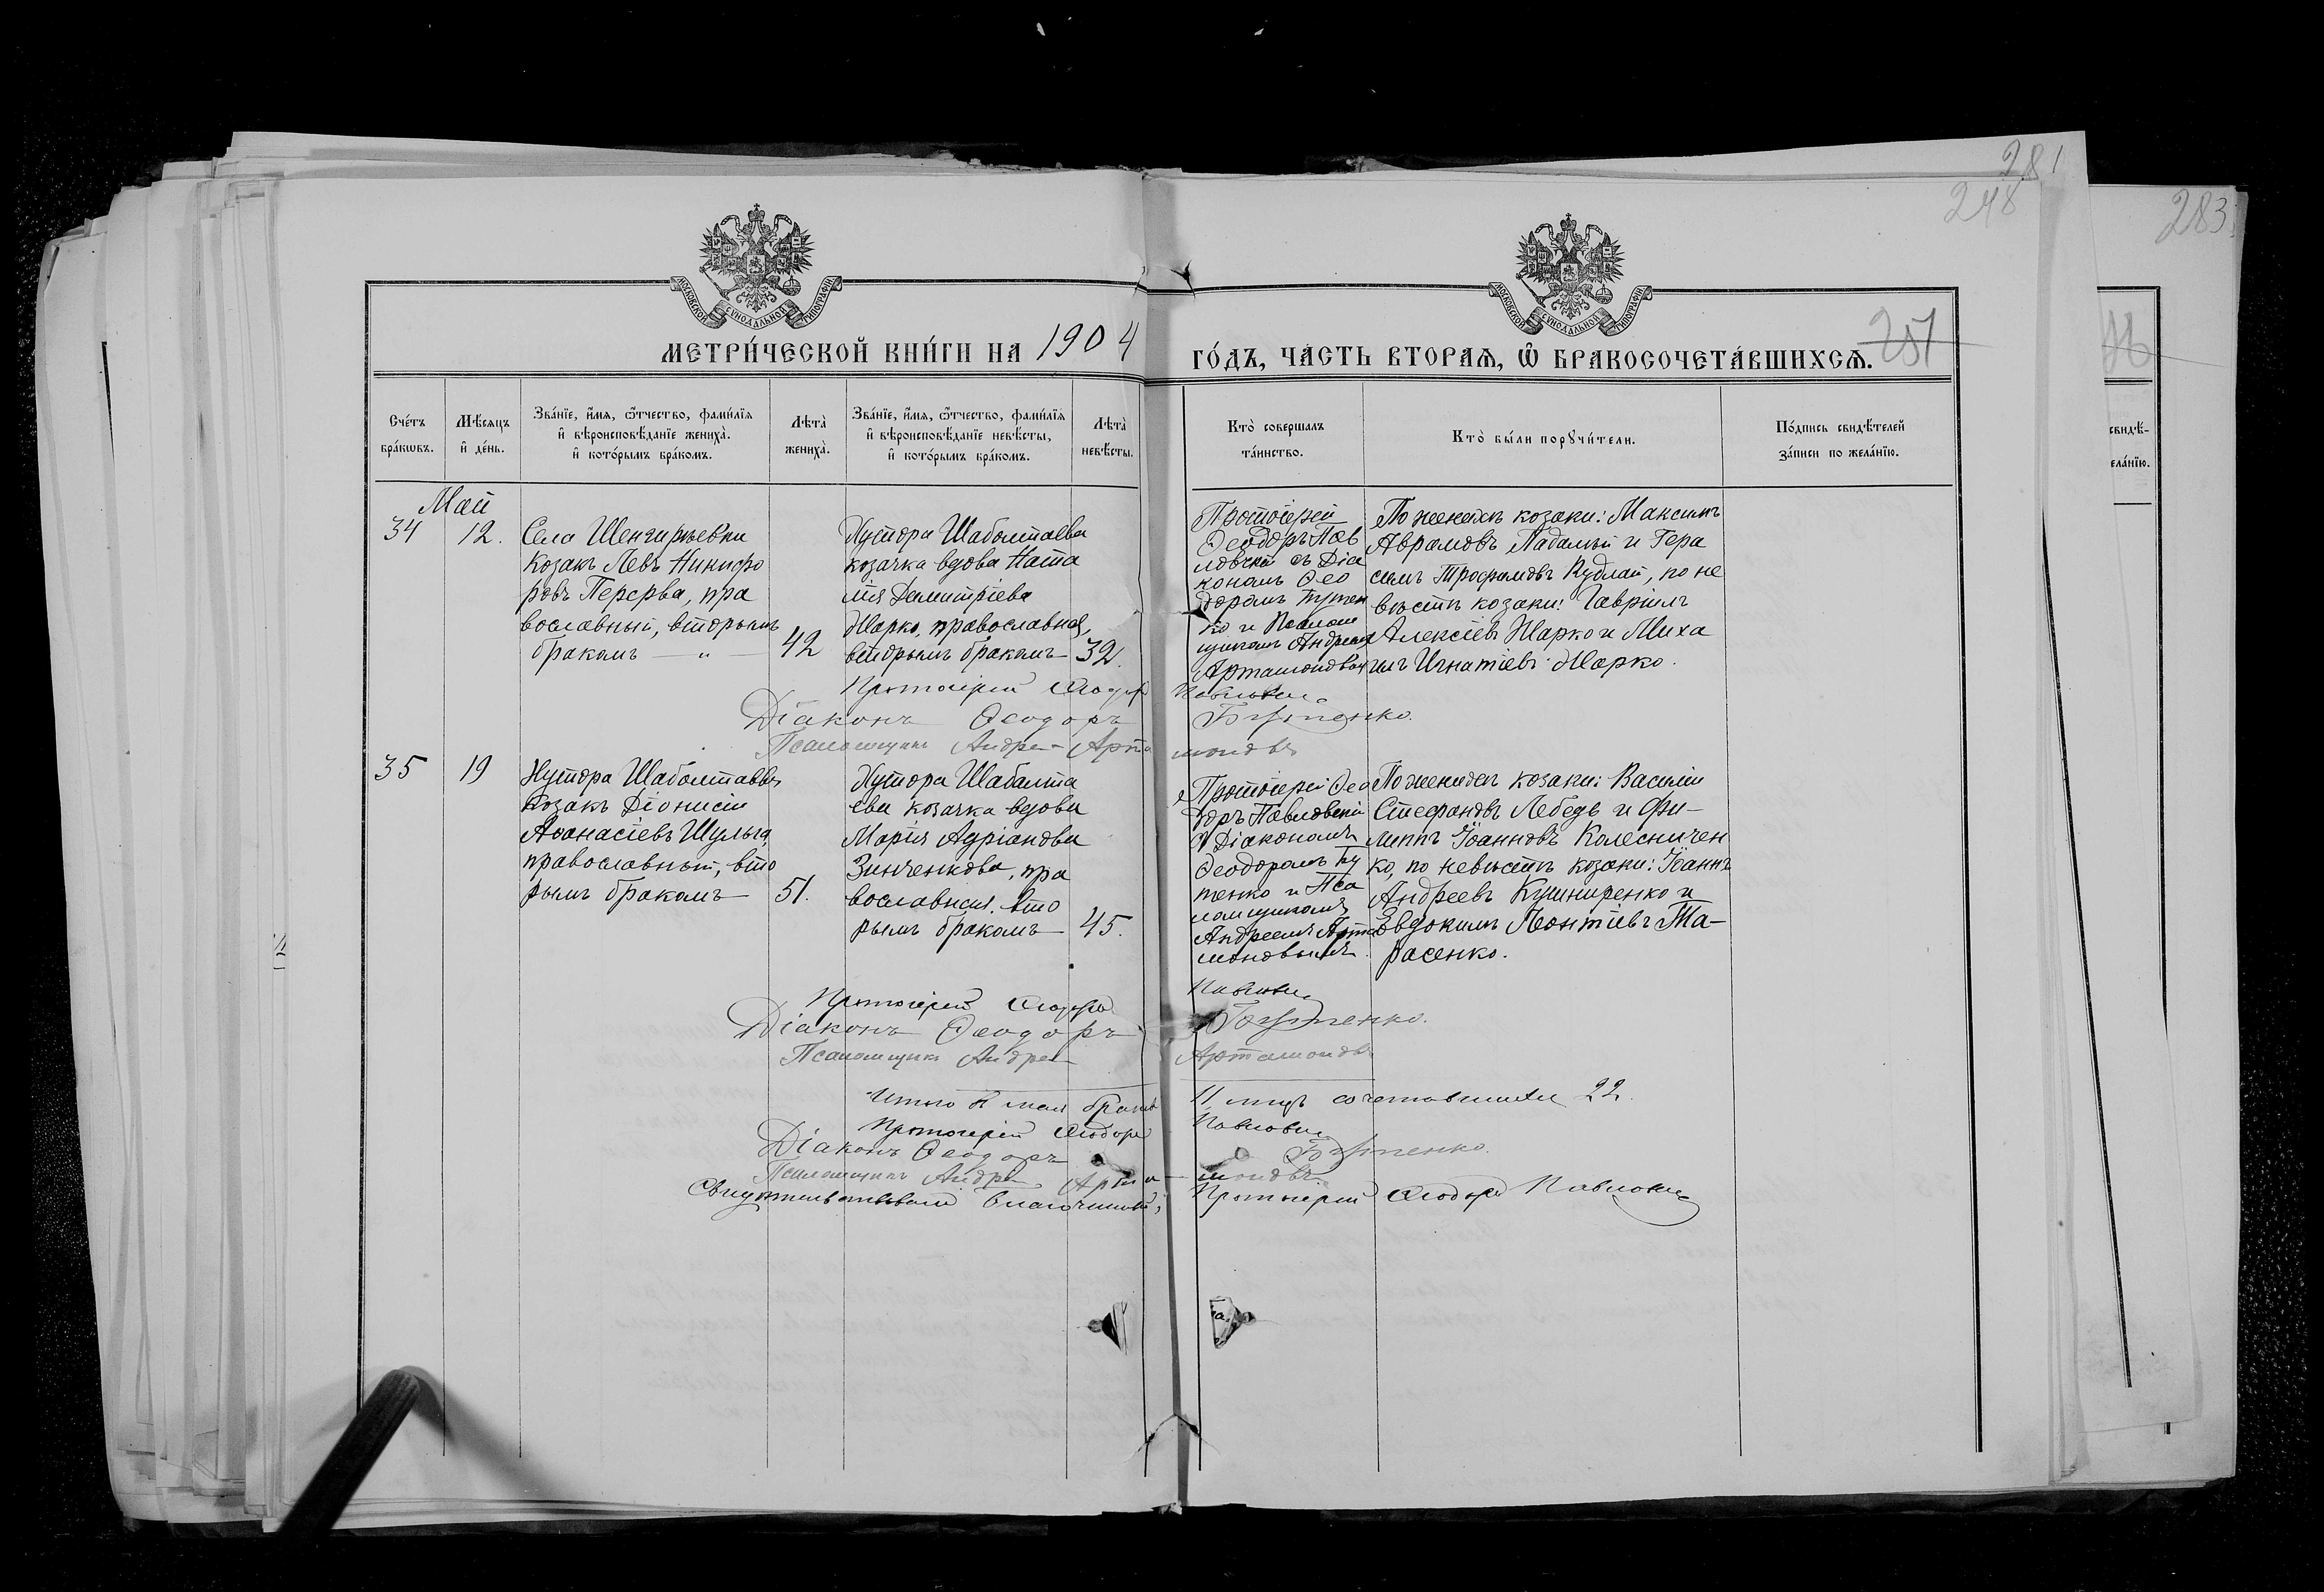 281
248
283
МОСКОВСКОЙ СѴНОДАЛЬНОЙ ТИПОГРАФІИ
МОСКОВСКОЙ СѴНОДАЛЬНОЙ ТИПОГРАФІИ
МЕТРИ́ЧЕСКОЙ КНИ́ГИ НА 1904
ГО́ДЪ, ЧА́СТЬ ВТОРАѦ, Ѡ҆ БРАКОСОЧЕТА́ВШИХСѦ.
257
Сче́тъ бра́кѡвъ.
Мѣ́сяцъ и҆ де́нь.
Зва́нїе, и҆́мѧ, ѻ҆́тчество, фами́лїѧ и҆ вѣроисповѣ́данїе жениха̀. и҆ кото́рымъ бра́комъ.
Лѣта̀ жениха̀.
Зва́нїе, и҆́мѧ, ѻ҆́тчество, фами́лїѧ и҆ вѣроисповѣ́данїе невѣ́сты, и҆ кото́рымъ бра́комъ.
Лѣта̀ невѣ́сты.
Кто̀ соверша́лъ та́инство.
Кто̀ бы́ли порꙋчи́тели.
По́дпись свидѣ́телей за́писи по жела́нїю.
свидѣ́-
ела́нїю.
Май
34
12.
Села Шенгирьевки
козакъ Левъ Никифо
ровъ Перерва, пра
вославный, вторымъ
бракомъ — „ —
42
Хутора Шаболтаева
козачка вдова Ната
лія Димитріева
Шарко, православная,
вторымъ бракомъ —
32.
Протоіерей
Ѳеодоръ Пав
ловскій съ Діа
кономъ Ѳео
доромъ Бутен
ко и Псалом
щикомъ Андреемъ
Артамоновым
По женихѣ козаки: Максимъ
Аврамовъ Падалый и Гера
симъ Трофимовъ Кудлай, по не
вѣстѣ козаки: Гавріилъ
Алексіевъ Шарко и Миха
илъ Игнатіевъ Шарко.
Протоіерей Ѳеодоръ Павловскій
Діаконъ Ѳеодоръ Бутенко.
Псаломщикъ Андрей Артамоновъ
35
19
Хутора Шаболтаева
козакъ Діонисій
Аѳанасіевъ Шульга,
православный, вто
рымъ бракомъ —
51.
Хутора Шабалта
ева козачка вдова
Марія Адріанова
Зинченкова, пра
вославная, вто
рымъ бракомъ —
45.
Протоіерей Ѳео
доръ Павловскій
съ Діакономъ
Ѳеодоромъ Бу
тенко и Пса
ломщикомъ
Андреемъ Арта
моновымъ
По женихѣ козаки: Василій
Стефановъ Лебедь и Фи-
липпъ Іоанновъ Колесничен
ко, по невѣстѣ козаки: Іоаннъ
Андреевъ Кушниренко и
Евдокимъ Леонтіевъ Та-
расенко.
Протоіерей Ѳеодоръ Павловскій
Діаконъ Ѳеодоръ Бутенко.
Псаломщикъ Андрей Артамоновъ
Итого въ маѣ браковъ 11 лицъ сочетавшихся 22.
Протоіерей Ѳеодоръ Павловскій
Діаконъ Ѳеодоръ Бутенко.
Псаломщикъ Андрей Артамоновъ
Свидѣтельствовалъ Благочинный, Протоіерей Ѳеодоръ Павловскій